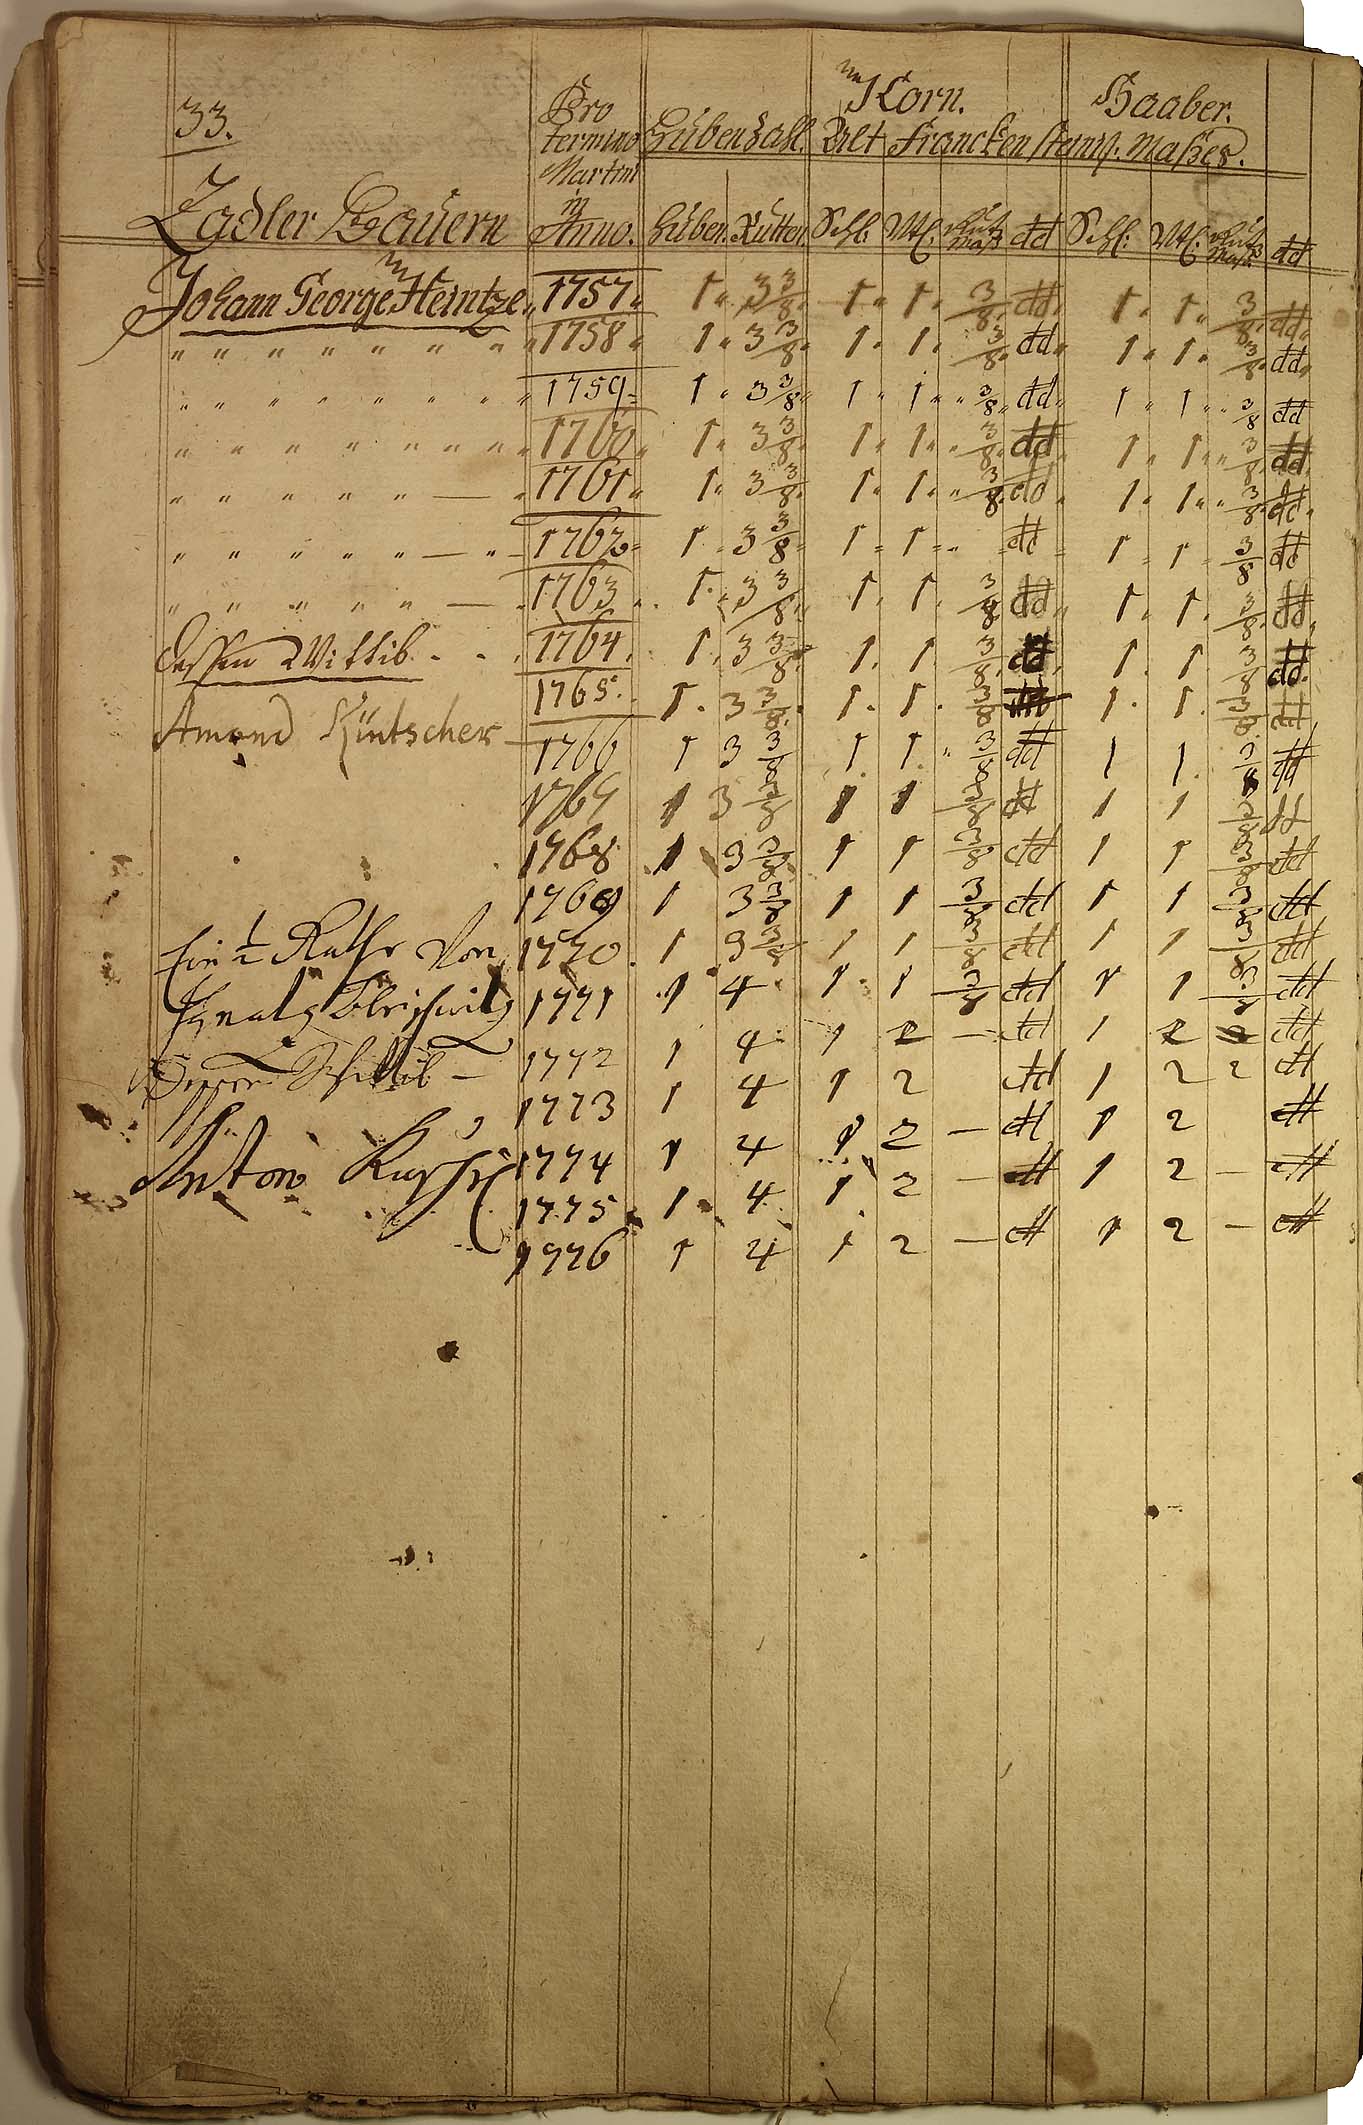 33.
Pro termino Martini in Anno.
Korn. Haaber.
Hubenzahl. Alt Franckensteinis. Maßes.
Zadler Bauern
Huben. Rutten Schl. Vtl. Maß dd Schl: Vtl. Maß dd
Johann George Heintze „ 1757 „ 1 „ 3 3/8 „ 1 „ 1 „ 3/8 „ dd „ 1 „ 1 „ 3/8 „ dd „
„ „ „ „ „ „ „ „ 1758 „ 1 „ 3 3/8 „ 1 „ 1 „ 3/8 „ dd „ 1 „ 1 „ 3/8 „ dd „
„ „ „ „ „ „ „ „ 1759 „ 1 „ 3 3/8 „ 1 „ 1 „ „ 3/8 „ dd „ 1 „ 1 „ „ 3/8 dd
„ „ „ „ „ „ „ „ 1760 „ 1 „ 3 3/8 „ 1 „ 1 „ „ 3/8 „ dd „ 1 „ 1 „ „ 3/8 „ dd
„ „ „ „ „ — „ 1761 „ 1 „ 3 3/8 „ 1 „ 1 „ „ 3/8 „ dd „ 1 „ 1 „ „ 3/8 „ dd „
„ „ „ „ „ — „ 1762 „ 1 „ 3 3/8 „ 1 „ 1 „ „ „ dd „ 1 „ 1 „ 3/8 dd
„ „ „ „ „ — „ 1763 „ 1 „ 3 3/8 „ 1 „ 1 „ 3/8 dd „ 1 „ 1 „ 3/8 „ dd „
dessen Wittib . . . 1764 . 1 . 3 3/8 . 1 . 1 3/8 . dd . 1 . 1 3/8 dd .
1765 . 1 . 3 3/8 . 1 . 1 . 3/8 dd 1 . 1 . 3/8 . dd
Amand Küntscher — 1766 1 3 3/8 1 1 „ 3/8 dd 1 1 3/8 dd
1767 1 3 3/8 1 1 3/8 dd 1 1 3/8 dd
1768 1 3 3/8 1 1 3/8 dd 1 1 3/8 dd
1769 1 3 3/8 1 1 3/8 dd 1 1 3/8 dd
Ein 1/2 Ruthe Von 1770 . 1 3 3/8 1 1 3/8 dd 1 1 3/8 dd
Ignatz 1771 1 4 1 1 3/8 dd 1 1 3/8 dd
1772 1 4 1 2 — dd 1 2 2 dd
1773 1 4 1 2 dd 1 2 2 dd
1774 1 4 1 2 — dd 1 2 dd
Anton 1775 1 4 1 2 — dd 1 2 — dd
1776 1 4 1 2 — dd 1 2 — dd